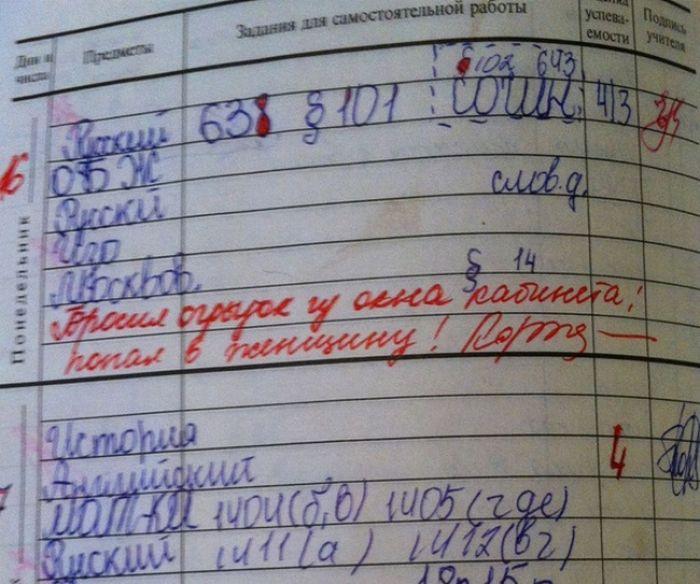 Дни и числа Предметы Задания для самостоятельной работы успева-емости Подпись учителя
§102 643
16 Русский 638 § 101 сочин. 4/3
Понедельник
ОБЖ
Русскй слов.д.
Изо
Москвов. § 14
Бросил огрызок из окна кабинета!
попал в женщину!
История
Английский 4
МАТ-КА 1404(б,в) 1405(где)
Русский 1411(а) 1412(вг)